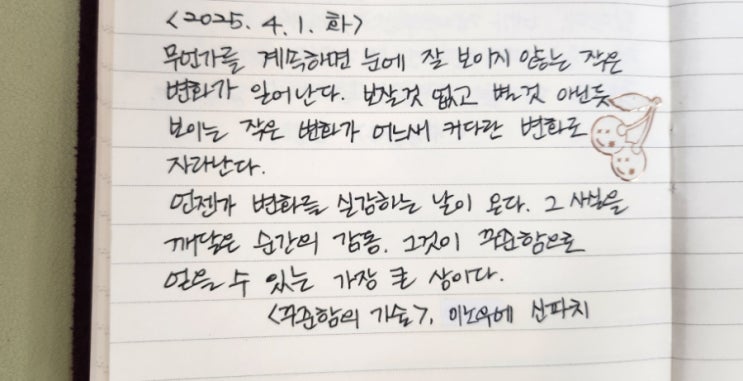 <2025. 4. 1. 화>
무언가를 계속하면 눈에 잘 보이지 않는 작은
변화가 일어난다. 보잘것 없고 별것 아닌듯
보이는 작은 변화가 어느새 커다란 변화로
자라난다.
언젠가 변화를 실감하는 날이 온다. 그 사실을
깨달은 순간의 감동. 그것이 꾸준함으로
얻을 수 있는 가장 큰 상이다.
<꾸준함의 기술>, 이노우에 신파치